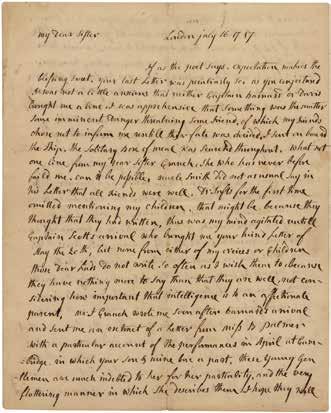 my dear sister London july 16 1787
If as the poet says, expectation makes the
blessing sweet, your last Letter was peculiarly so as you conjectured
I was not a little anxious that neither Captain Barnard or Davis
brought me a line. I was apprehensive that something was the matter
some imminent Danger threatning some Friend, of which my Friends
chose not to inform me untill their fate was decided. I sent on board
the Ship. the Solitary Box of meal was searchd throughout. What not
one line from my dear Sister Cranch, she who has never before
faild me, can it be possible, uncle Smith did not as usual say in
his Letter that all Friends were well. Dr Tufts for the first time
omitted mentioning my children, that might be because they
thought that they had written, thus was my mind agitated untill
Captain Scotts arrival who brought me your kind Letter of
May the 20th, but none from either of my Neices or Children
those dear Lads do not write so often as I wish them to because
they have nothing more to say than that they are well, not con-
sidering how important that intelligence is to an affectionate
parent, mr J Cranch wrote me soon after Barnards arrival
and sent me an extract of a Letter from miss B Palmer
with a particular account of the performances in April at Cam-
bridge, in which your son & mine bore a part, these young Gen-
tlemen are much indebted to her for her partiality, and the very
flattering manner in which she describes them. I hope they will